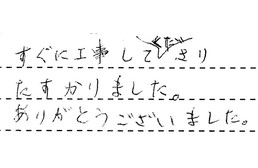 すぐに工事してくださり
たすかりました。
ありがとうございました。